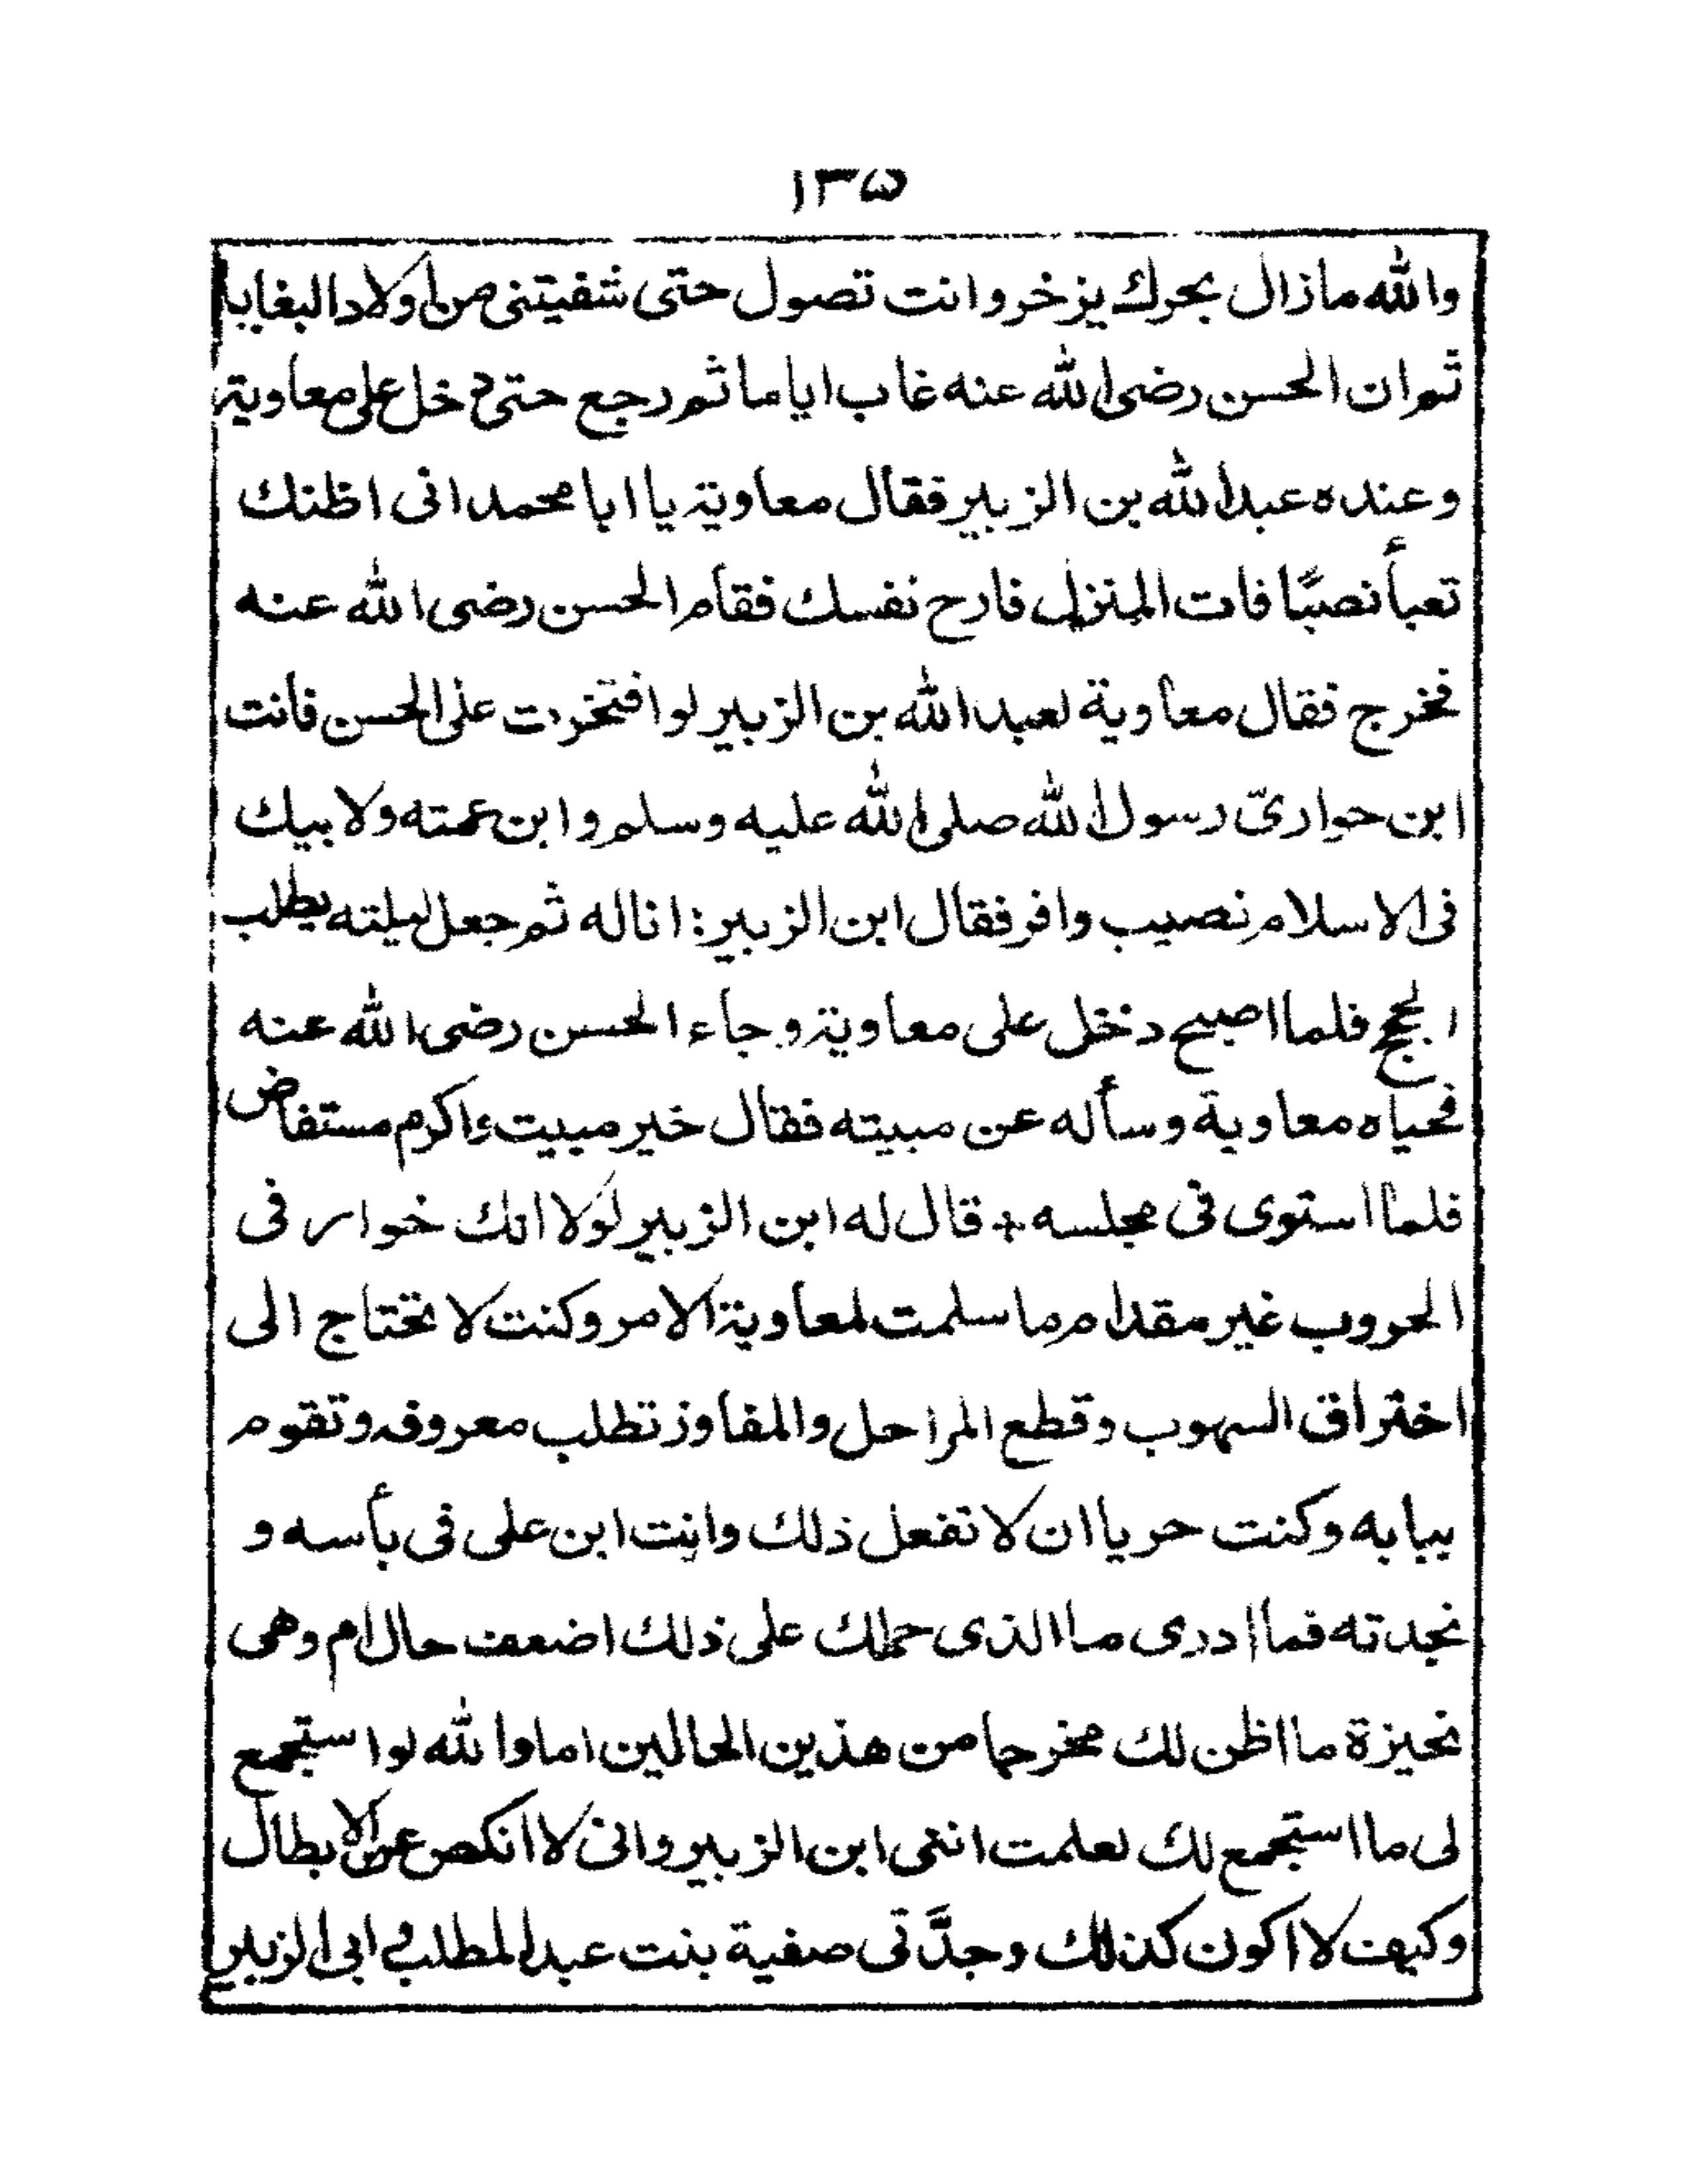 ۱۳۵
والله مازال بحرك يزخر وانت تصول حتى شفيتنى من اولاد البغايا
ثم ان الحسن رضى الله عنه غاب اياما ثم رجع حتى دخل على معاوية
وعنده عبد الله بن الزبير فقال معاوية يا ابا محمد انى اظنك
تعبأ نصبًا فات المنزل فارح نفسك فقام الحسن رضى الله عنه
فخرج فقال معاوية لعبد الله بن الزبير لو افتخرت على الحسن فانت
ابن حوارىّ رسول الله صلى الله عليه وسلم وابن عمته ولابيك
فى الاسلام نصيب وافر فقال ابن الزبير: انا له ثم جعل ليلته يطلب
الحجج فلما اصبح دخل على معاوية وجاء الحسن رضى الله عنه
فحياه معاوية وسأله عن مبيته فقال خير مبيت واكرم مستفاض
فلما استوى فى مجلسه + قال له ابن الزبير لولا انك خوار فى
الحروب غير مقدام ما سلمت لمعاوية الامر وكنت لا تحتاج الى
اختراق السهوب وقطع المراحل والمفاوز تطلب معروفه وتقوم
ببابه وكنت حريا ان لا تفعل ذلك وانت ابن على فى بأسه و
نجدته فما ادرى ما الذى حملك على ذلك اضعف حال ام وهى
نحيزة ما اظن لك مخرجا من هذين الحالين اما والله لو استجمع
لى ما استجمع لك لعلمت اننى ابن الزبير وانى لا انكص عن الابطال
وكيف لا اكون كذلك وجدَّتى صفية بنت عبد المطلب وابى الزبير